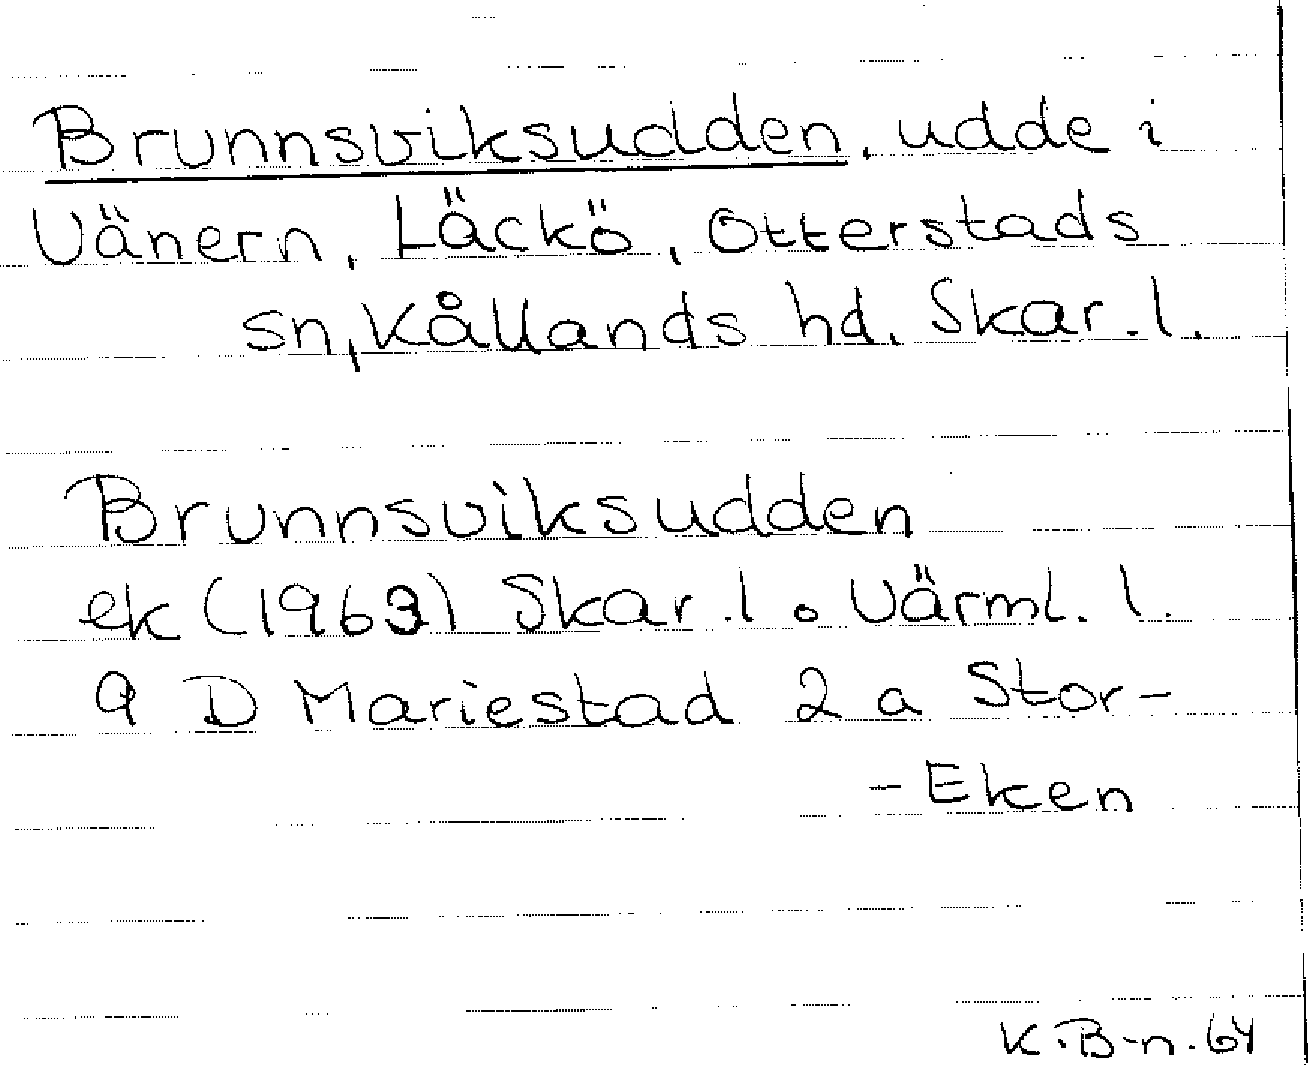 Brunnsviksudden, udde i
Vänern, Läckö, Otterstads
sn, Kållands hd. Skar. l.
Brunnsviksudden
ek (1963) Skar. l o Värml. l.
9 D Mariestad 2 a Stor-
-Eken
K.B-n. 64